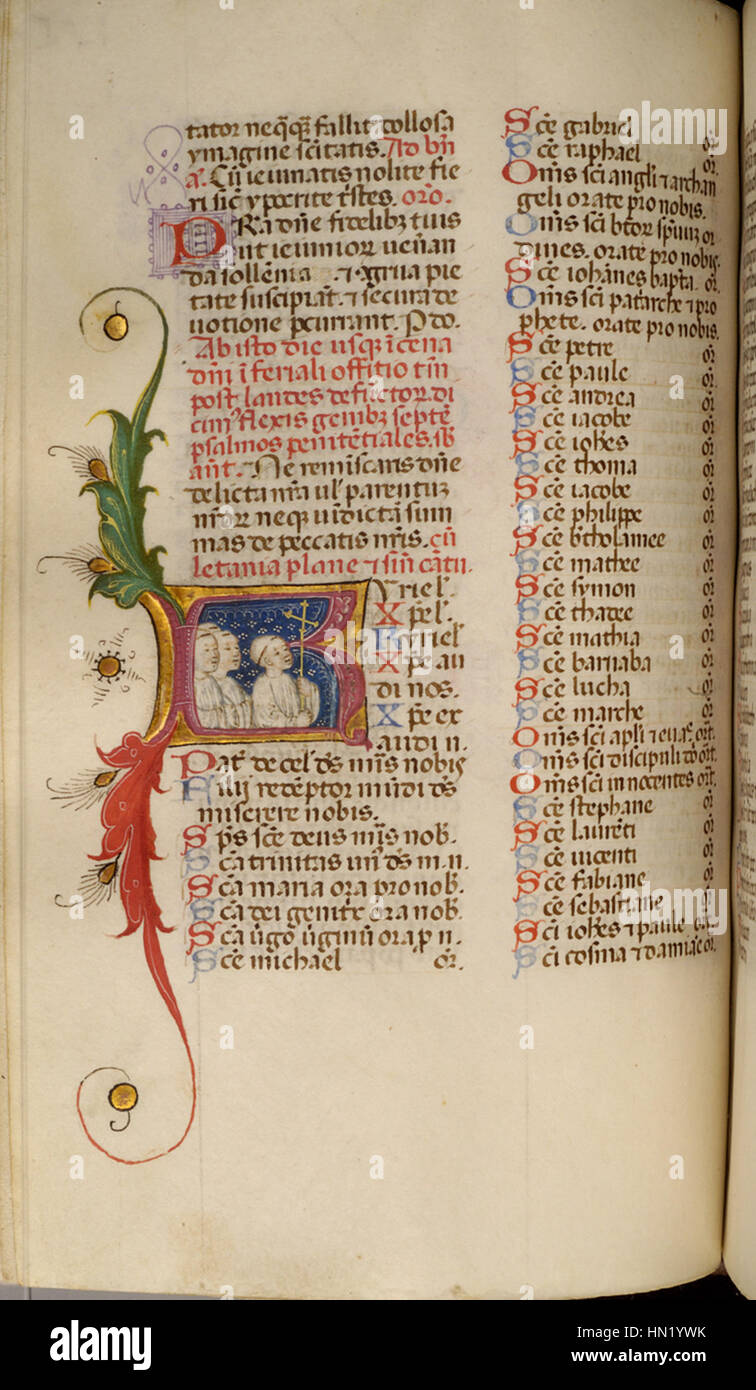 tator neq̃q̃ fallit collosa
ymagine scītatis. Ad bn̄
a. Cū ieiunatis nolite fie
ri sic̄ ypocrite tr̄stes. oro.
PRa dn̄e fidelibꝫ tuis
ut ieiunior uenan
da sollēnia ⁊ ↄgrua pie
tate suscipiāt. ⁊ secura de
uotione p̄currant. P do.
Ab isto die usq̃ ī cena
dn̄i ī feriali offitio tm̄
post laudes defūctoꝝ di
cim⁹ flexis genibꝫ septē
psalmos penitētiales. sb̄
ant̄. Ne reminiscaris dn̄e
delicta nr̄a ul̓ parentuꝫ
nr̄oꝝ neqꝫ uindictā sum
mas de peccatis nr̄is. cū
letania plane ⁊ sin̄ cātu.
Kyriel̓.
Xp̄e l̓.
Kiriel̓
Xp̄e au
di nos.
Xp̄e ex
audi n.
Pat̄ de cel̓ ds̄ mis̄ nobis
Fili redēptor mūdi ds̄
miserere nobis.
Sp̄s sc̄e deus mis̄ nob̄.
Sc̄a trinitas un̄ ds̄ m. n.
Sc̄a maria ora pro nob̄.
Sc̄a dei genitx̄ ora nob̄.
Sc̄a ūgo ūginū ora p n.
Sc̄e michael or̄.
Sc̄e gabriel or̄
Sc̄e raphael or̄.
Om̄s sc̄i angli ⁊ archan
geli orate pro nobis.
Om̄s sc̄i btōr spirituū or
dines. orate pro nobis.
Sc̄e iohānes bapta. or̄.
Om̄s sc̄i pat̄arche ⁊ pro
phete. orate pro nobis.
Sc̄e petre or̄
Sc̄e paule or̄
Sc̄e andrea or̄
Sc̄e iacobe or̄
Sc̄e ioh̄es or̄
Sc̄e thoma or̄
Sc̄e iacobe or̄
Sc̄e philippe or̄
Sc̄e b̄tholamee or̄
Sc̄e mathee or̄
Sc̄e symon or̄
Sc̄e thadee or̄
Sc̄e mathia or̄
Sc̄e barnaba or̄
Sc̄e lucha or̄
Sc̄e marche or̄
Om̄s sc̄i apl̄i ⁊ euāᵉ. orāt.
Om̄s sc̄i discipuli dō orāt.
Om̄s sc̄i innocentes orāt.
Sc̄e stephane or̄
Sc̄e laurēti or̄
Sc̄e uicenti or̄
Sc̄e fabiane or̄
Sc̄e sebastiane or̄
Sc̄i ioh̄es ⁊ paule
Sc̄i cosma ⁊ damiāe or̄.
alamy
Image ID: HN1YWK
www.alamy.com